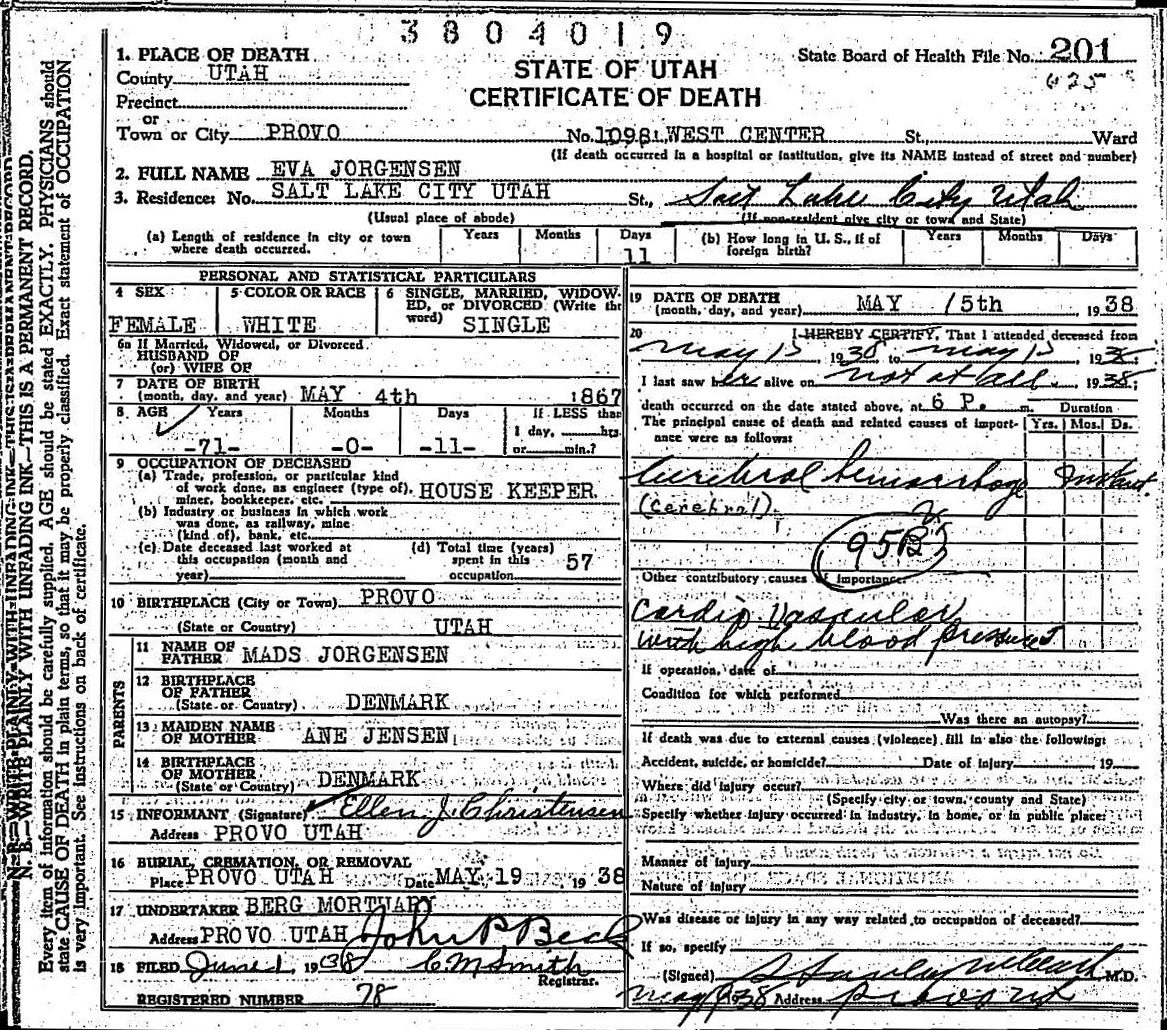 3804019
State Board of Health File No. 201
625
STATE OF UTAH
CERTIFICATE OF DEATH
1. PLACE OF DEATH
County UTAH
Precinct
or
Town or City PROVO No. 1098 WEST CENTER St., Ward
(If death occurred in a hospital or institution, give its NAME instead of street and number)
2. FULL NAME EVA JORGENSEN
3. Residence: No. SALT LAKE CITY UTAH St., Salt Lake City Utah
(Usual place of abode) (If non-resident give city or town and State)
(a) Length of residence in city or town where death occurred. Years Months Days 11
(b) How long in U. S., if of foreign birth? Years Months Days
PERSONAL AND STATISTICAL PARTICULARS
4 SEX FEMALE
5 COLOR OR RACE WHITE
6 SINGLE, MARRIED, WIDOWED, or DIVORCED (Write the word) SINGLE
6a If Married, Widowed, or Divorced
HUSBAND OF
(or) WIFE OF
7 DATE OF BIRTH
(month, day, and year) MAY 4th 1867
8 AGE Years Months Days If LESS than
-71- -0- -11- 1 day, hrs.
or min.?
9 OCCUPATION OF DECEASED
(a) Trade, profession, or particular kind
of work done, as engineer (type of), HOUSE KEEPER
miner, bookkeeper, etc.
(b) Industry or business in which work
was done, as railway, mine
(kind of), bank, etc.
(c) Date deceased last worked at
this occupation (month and
year)
(d) Total time (years)
spent in this 57
occupation
10 BIRTHPLACE (City or Town) PROVO
(State or Country) UTAH
PARENTS
11 NAME OF
FATHER MADS JORGENSEN
12 BIRTHPLACE
OF FATHER
(State or Country) DENMARK
13 MAIDEN NAME
OF MOTHER ANE JENSEN
14 BIRTHPLACE
OF MOTHER
(State or Country) DENMARK
15 INFORMANT (Signature) Ellen J. Christensen
Address PROVO UTAH
16 BURIAL, CREMATION, OR REMOVAL
Place PROVO UTAH Date MAY 19 1938
17 UNDERTAKER BERG MORTUARY
Address PROVO UTAH John P Beck
18 FILED June 1, 1938 C M Smith
Registrar.
REGISTERED NUMBER 78
19 DATE OF DEATH
(month, day, and year) MAY 15th 1938
20 I HEREBY CERTIFY, That I attended deceased from
May 15 1938 to May 15 1938;
I last saw her alive on not at all. 1938;
death occurred on the date stated above, at 6 P. m. Duration
The principal cause of death and related causes of importance were as follows: Yrs. Mos. Ds.
Cerebral hemorrhage Instant.
(cerebral)
95B
Other contributory causes of importance:
Cardio Vascular
with high blood pressure
If operation, date of
Condition for which performed
Was there an autopsy?
If death was due to external causes (violence) fill in also the following:
Accident, suicide, or homicide? Date of injury 19
Where did injury occur?
(Specify city or town, county and State)
Specify whether injury occurred in industry, in home, or in public place:
Manner of injury
Nature of injury
Was disease or injury in any way related to occupation of deceased?
If so, specify
(Signed) Stanley M.D.
1938 Address Provo
N. B.—WRITE PLAINLY WITH UNFADING INK—THIS IS A PERMANENT RECORD.
Every item of information should be carefully supplied. AGE should be stated EXACTLY. PHYSICIANS should
state CAUSE OF DEATH in plain terms, so that it may be properly classified. Exact statement of OCCUPATION
is very important. See instructions on back of certificate.